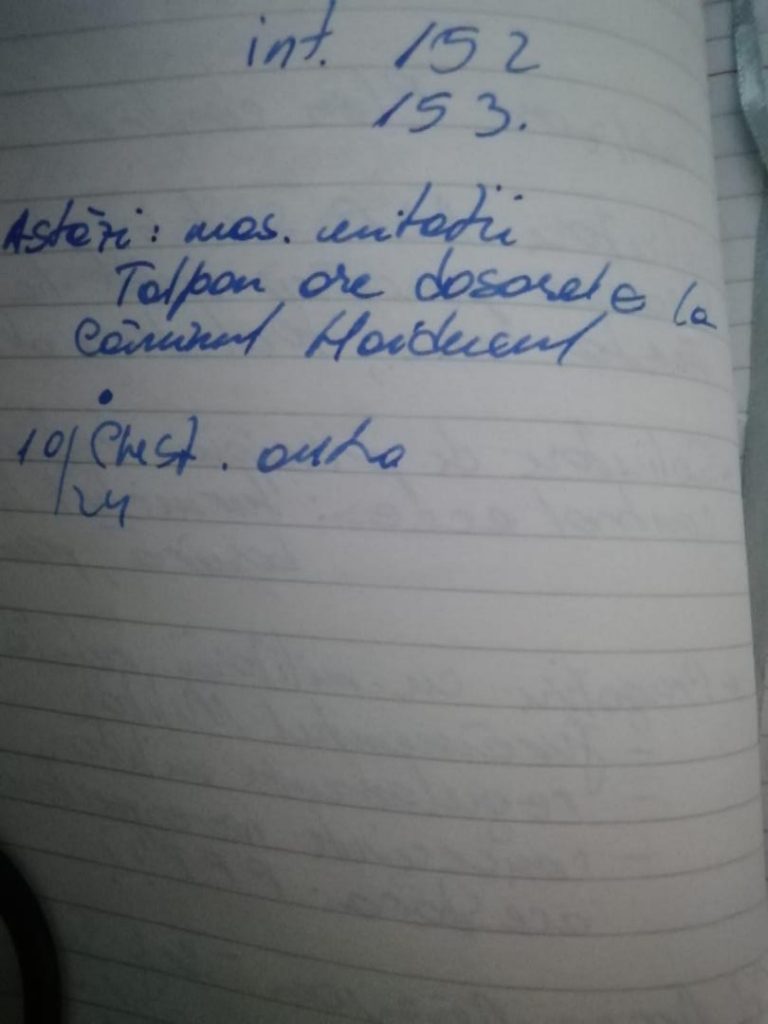 int. 152
153.
Astăzi: mas. unitatii
Talpan are dosarele la
Căminul Haiducul
10/ Chest.
/24